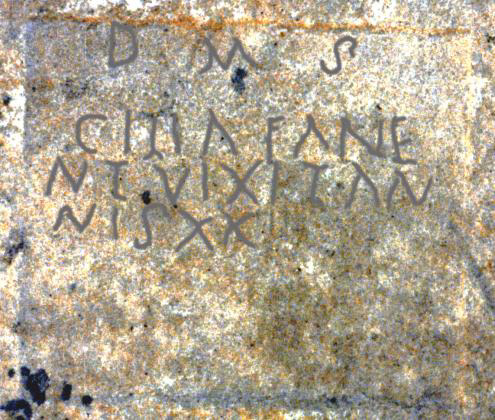 D M S
CIIIA FANE
NI VIXIT AN
NIS XX